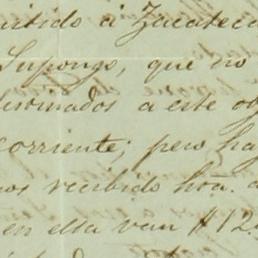 mitido á Zacateca
Supongo, que no
esionados a este ob
corriente; pero ha
mos recibido hoi.
en ella van $12